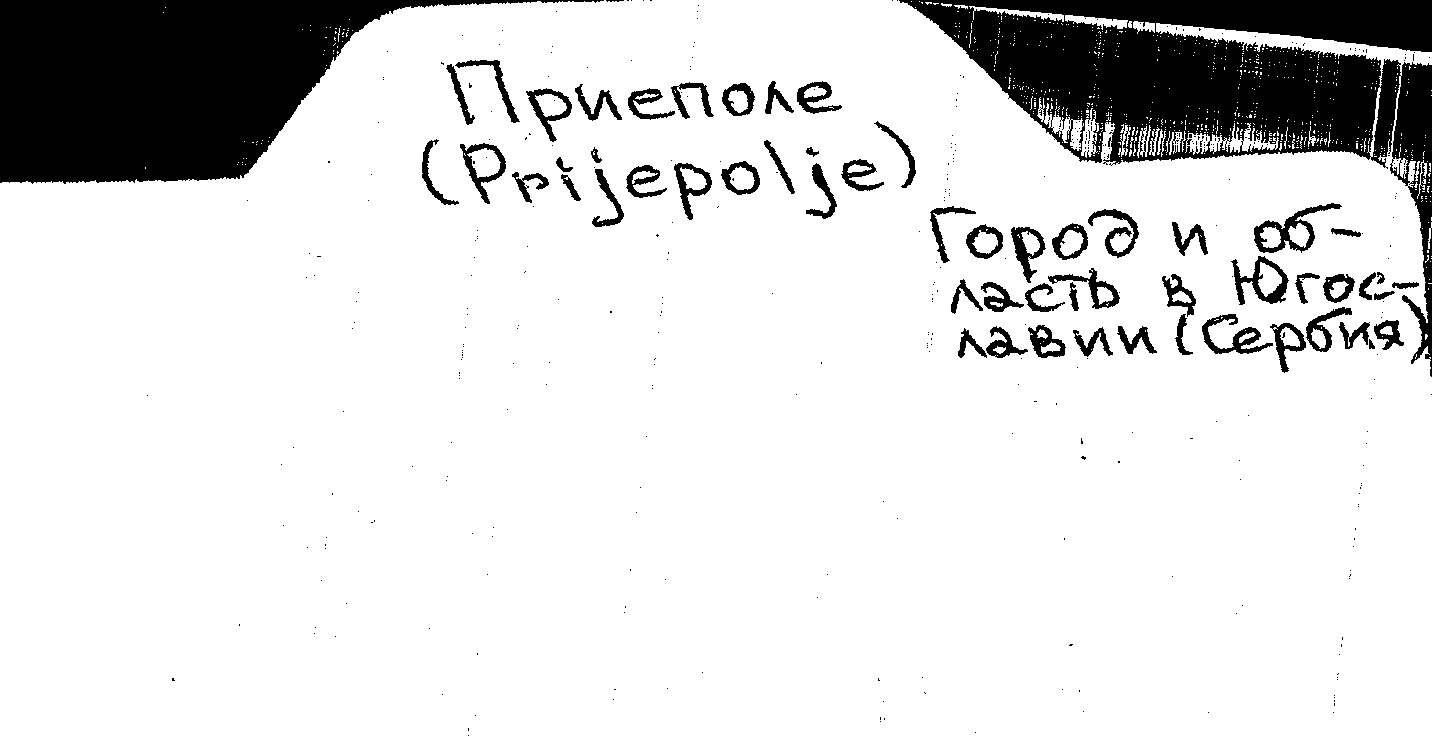 Приеполе
(Prijepolje)
Город и об-
ласть в Югос-
лавии (Сербия)